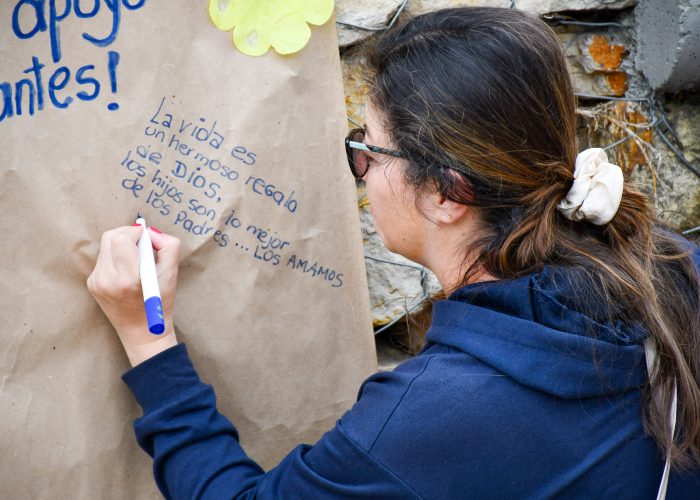 apoyo
antes!
La vida es
un hermoso regalo
de DIOS,
los hijos son lo mejor
de los padres ... LOS AMAMOS